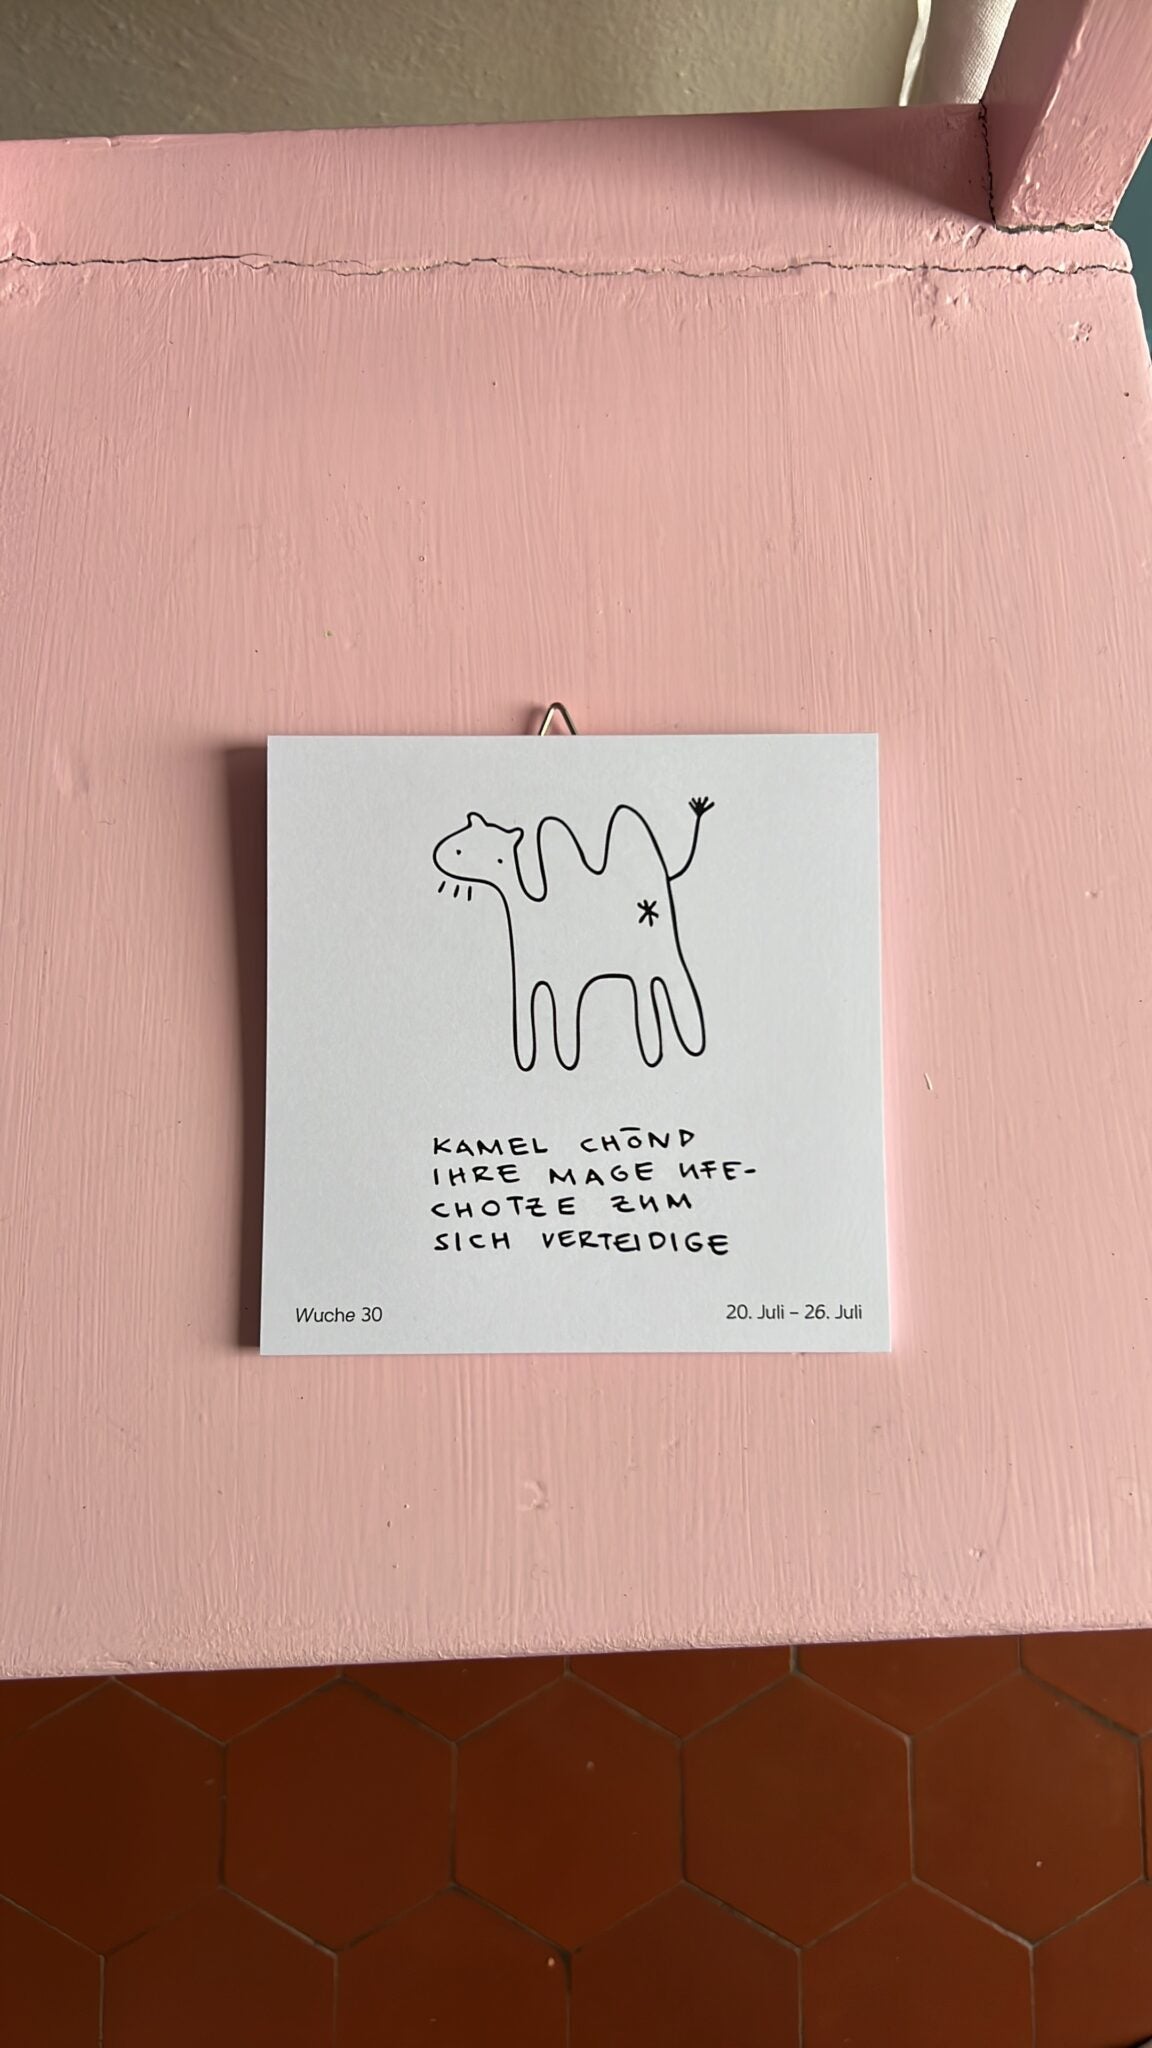 KAMEL CHÖND
IHRE MAGE UFE-
CHOTZE ZUM
SICH VERTEIDIGE
Wuche 30
20. Juli – 26. Juli